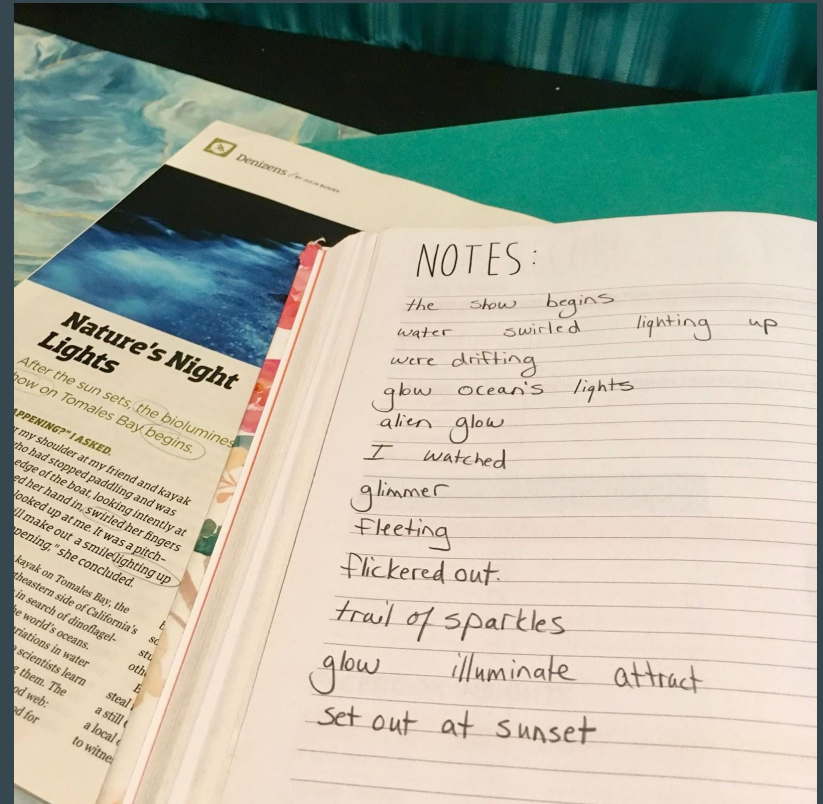 Denizens / BY JULIA
Nature's Night
Lights
After the sun sets, the biolumines
how on Tomales Bay begins.
APPENING?" I ASKED.
my shoulder at my friend and kayak
ho had stopped paddling and was
edge of the boat, looking intently at
ed her hand in, swirled her fingers
looked up at me. It was a pitch-
ll make out a smile lighting up
pening," she concluded.
kayak on Tomales Bay, the
theastern side of California's
in search of dinoflagel-
e world's oceans.
riations in water
scientists learn
them. The
od web:
d for
so
stu
oth
E
steal
a still
a local
to witne
NOTES:
the show begins
water swirled lighting up
were drifting
glow ocean's lights
alien glow
I watched
glimmer
fleeting
flickered out.
trail of sparkles
glow illuminate attract
set out at sunset